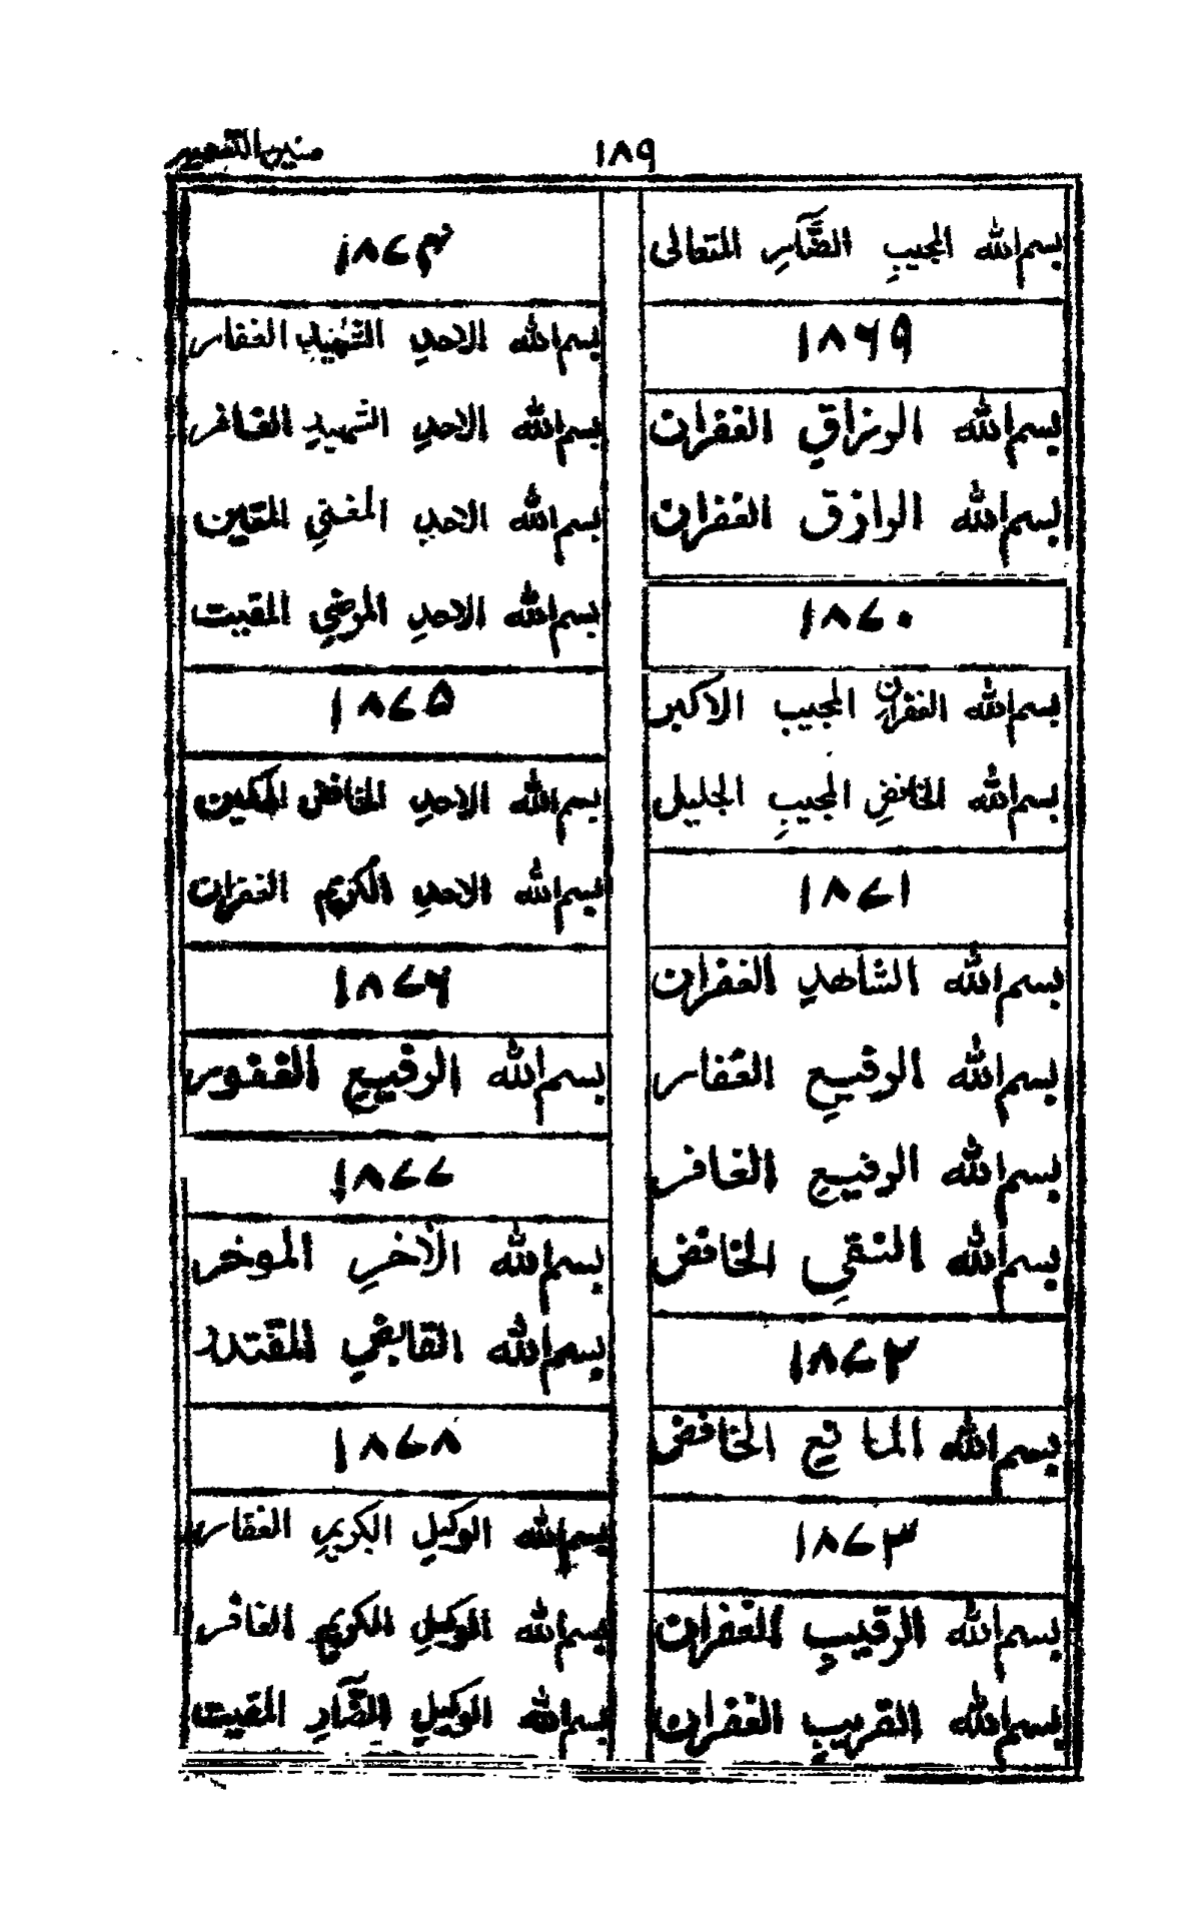 ١٨٩
منير التعمير
بسم الله المجيبِ الضَّآرِ المتعالى
١٨٦٩
بسم الله الرزاقِ الغفران
بسم الله الرازق الغفران
١٨٧٠
بسم الله الغفران المجيب الاكبر
بسم الله الخافضِ المجيبِ الجليل
١٨٧١
بسم الله الشاهدِ الغفران
بسم الله الرقيعِ الغفار
بسم الله الرفيعِ الغافر
بسم الله النقيِ الخافض
١٨٧٢
بسم الله المانعِ الخافض
١٨٧٣
بسم الله الرقيبِ الغفران
بسم الله القريبِ الغفران
١٨٧٤
بسم الله الاحدِ الشهيدِ الغفار
بسم الله الاحدِ الشهيدِ الغافر
بسم الله الاحدِ المغنيِ
بسم الله الاحدِ المرضيِ المقيت
١٨٧٥
بسم الله الاحدِ الخافض
بسم الله الاحدِ الكريم الغفران
١٨٧٦
بسم الله الرقيعِ الغفور
١٨٧٧
بسم الله الآخرِ الموخر
بسم الله القابضِ المقتدر
١٨٧٨
بسم الله الوكيلِ الكريمِ الغفار
بسم الله الوكيلِ الكريمِ الغافر
بسم الله الوكيلِ الضَّآرِ المقيت